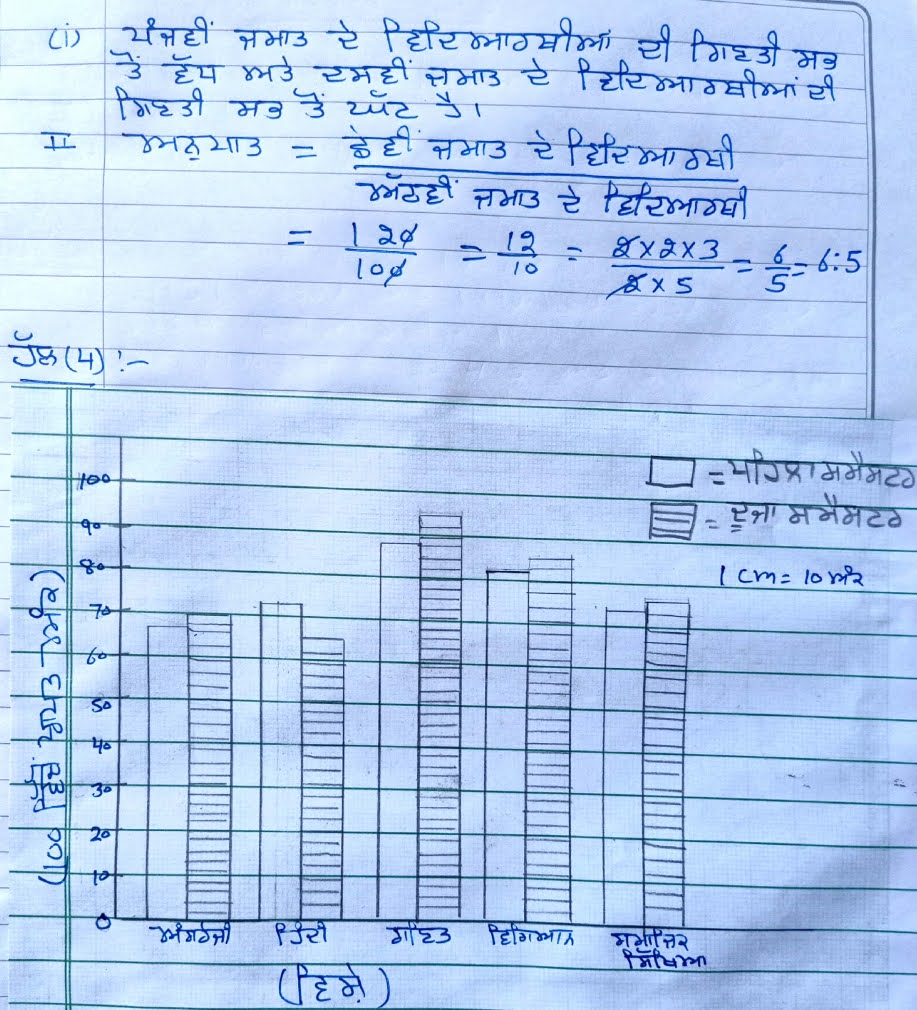 (i) ਪੰਜਵੀਂ ਜਮਾਤ ਦੇ ਵਿਦਿਆਰਥੀਆਂ ਦੀ ਗਿਣਤੀ ਸਭ
ਤੋਂ ਵੱਧ ਅਤੇ ਦਸਵੀਂ ਜਮਾਤ ਦੇ ਵਿਦਿਆਰਥੀਆਂ ਦੀ
ਗਿਣਤੀ ਸਭ ਤੋਂ ਘੱਟ ਹੈ।
II ਅਨੁਪਾਤ = ਛੇਵੀਂ ਜਮਾਤ ਦੇ ਵਿਦਿਆਰਥੀ
ਅੱਠਵੀਂ ਜਮਾਤ ਦੇ ਵਿਦਿਆਰਥੀ
= 120/100 = 12/10 = 2×2×3/2×5 = 6/5 = 6:5
ਹੱਲ (4) :-
= ਪਹਿਲਾ ਸਮੈਸਟਰ
= ਦੂਜਾ ਸਮੈਸਟਰ
1 cm = 10 ਅੰਕ
100
90
80
70
60
50
40
30
20
10
0
(100 ਵਿੱਚੋਂ ਪ੍ਰਾਪਤ ਅੰਕ)
ਅੰਗਰੇਜ਼ੀ ਹਿੰਦੀ ਗਣਿਤ ਵਿਗਿਆਨ ਸਮਾਜਿਕ
ਸਿੱਖਿਆ
(ਵਿਸ਼ੇ)